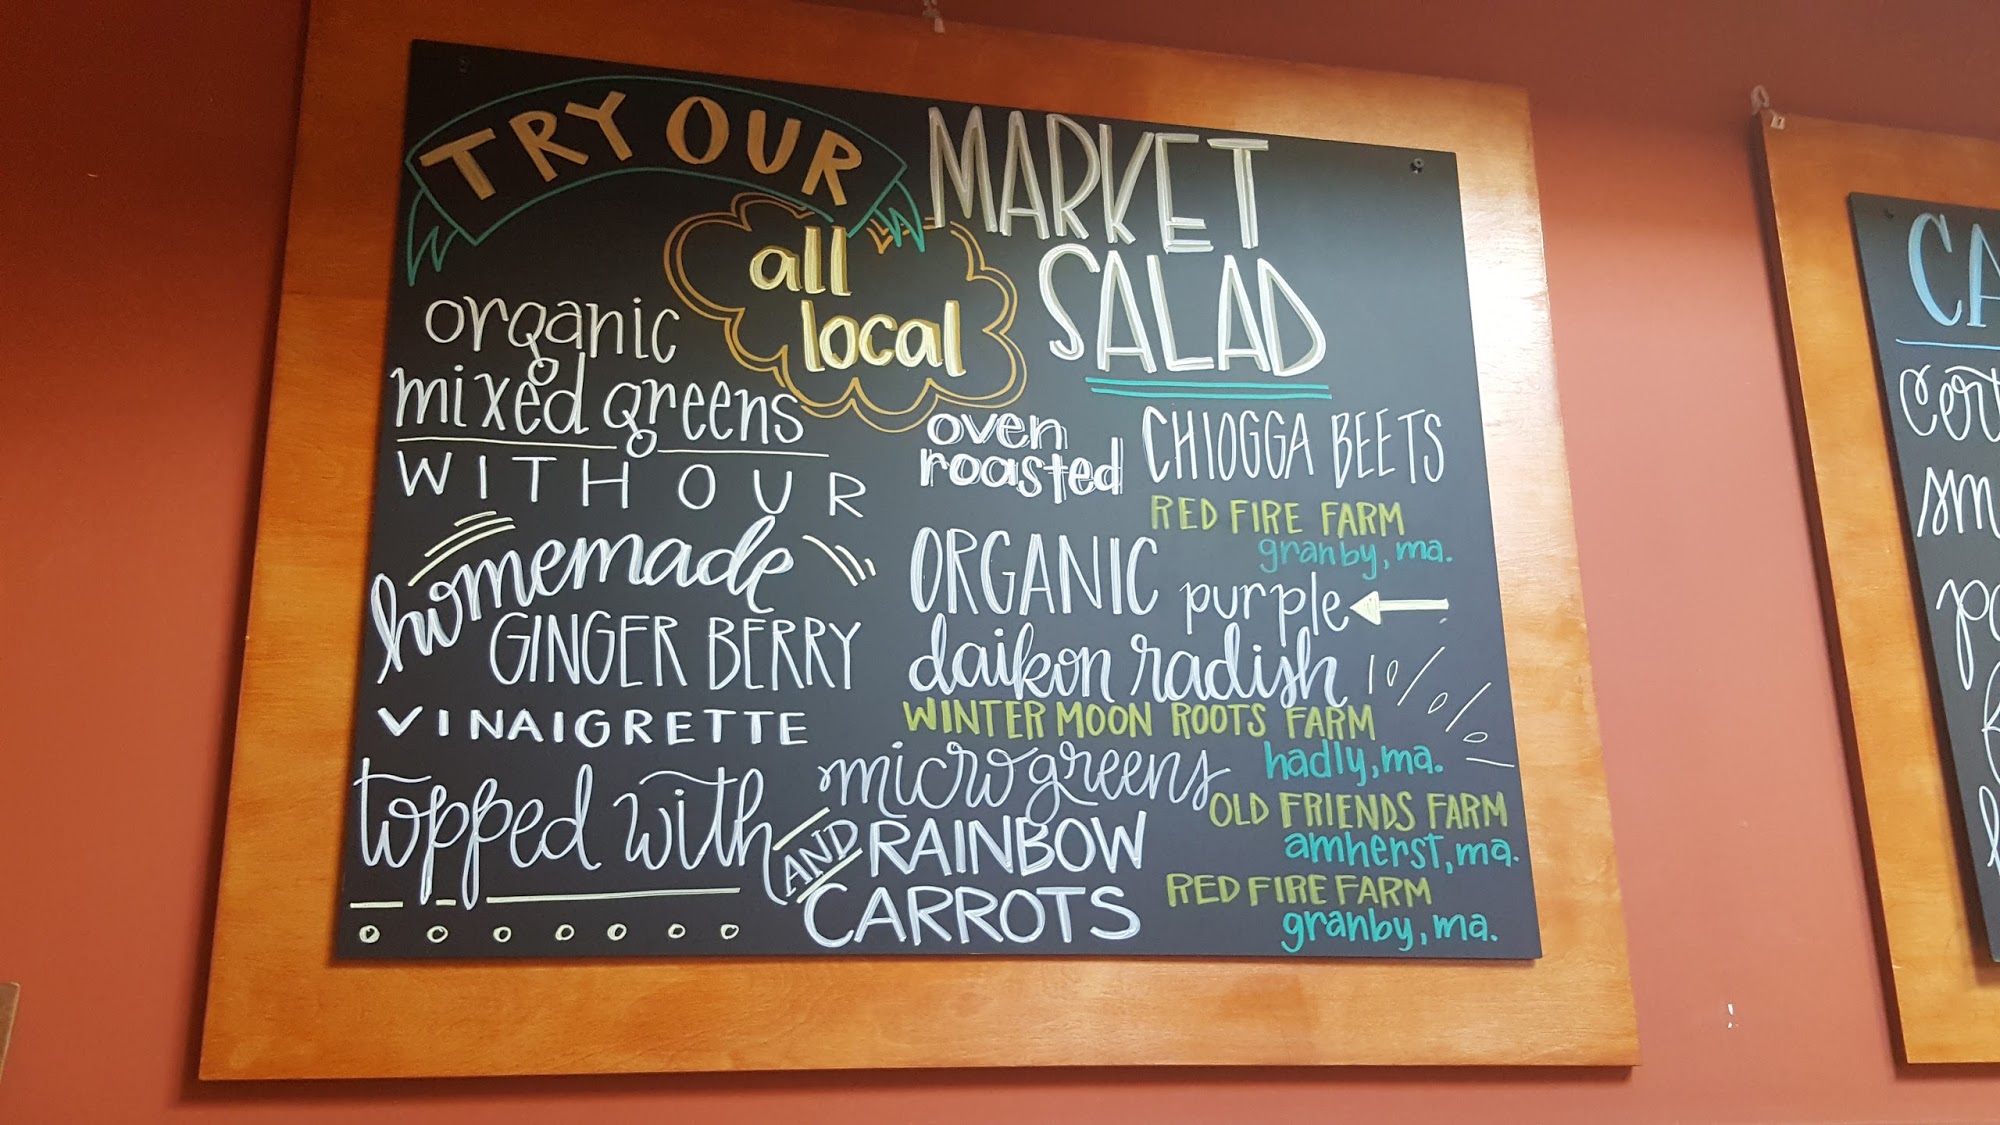 TRY OUR
all
local
MARKET
SALAD
organic
mixed greens
WITH OUR
homemade
GINGER BERRY
VINAIGRETTE
topped with
oven
roasted CHIOGGA BEETS
RED FIRE FARM
granby, ma.
ORGANIC purple
daikon radish
WINTER MOON ROOTS FARM
hadly, ma.
microgreens
OLD FRIENDS FARM
amherst, ma.
AND RAINBOW
CARROTS
RED FIRE FARM
granby, ma.